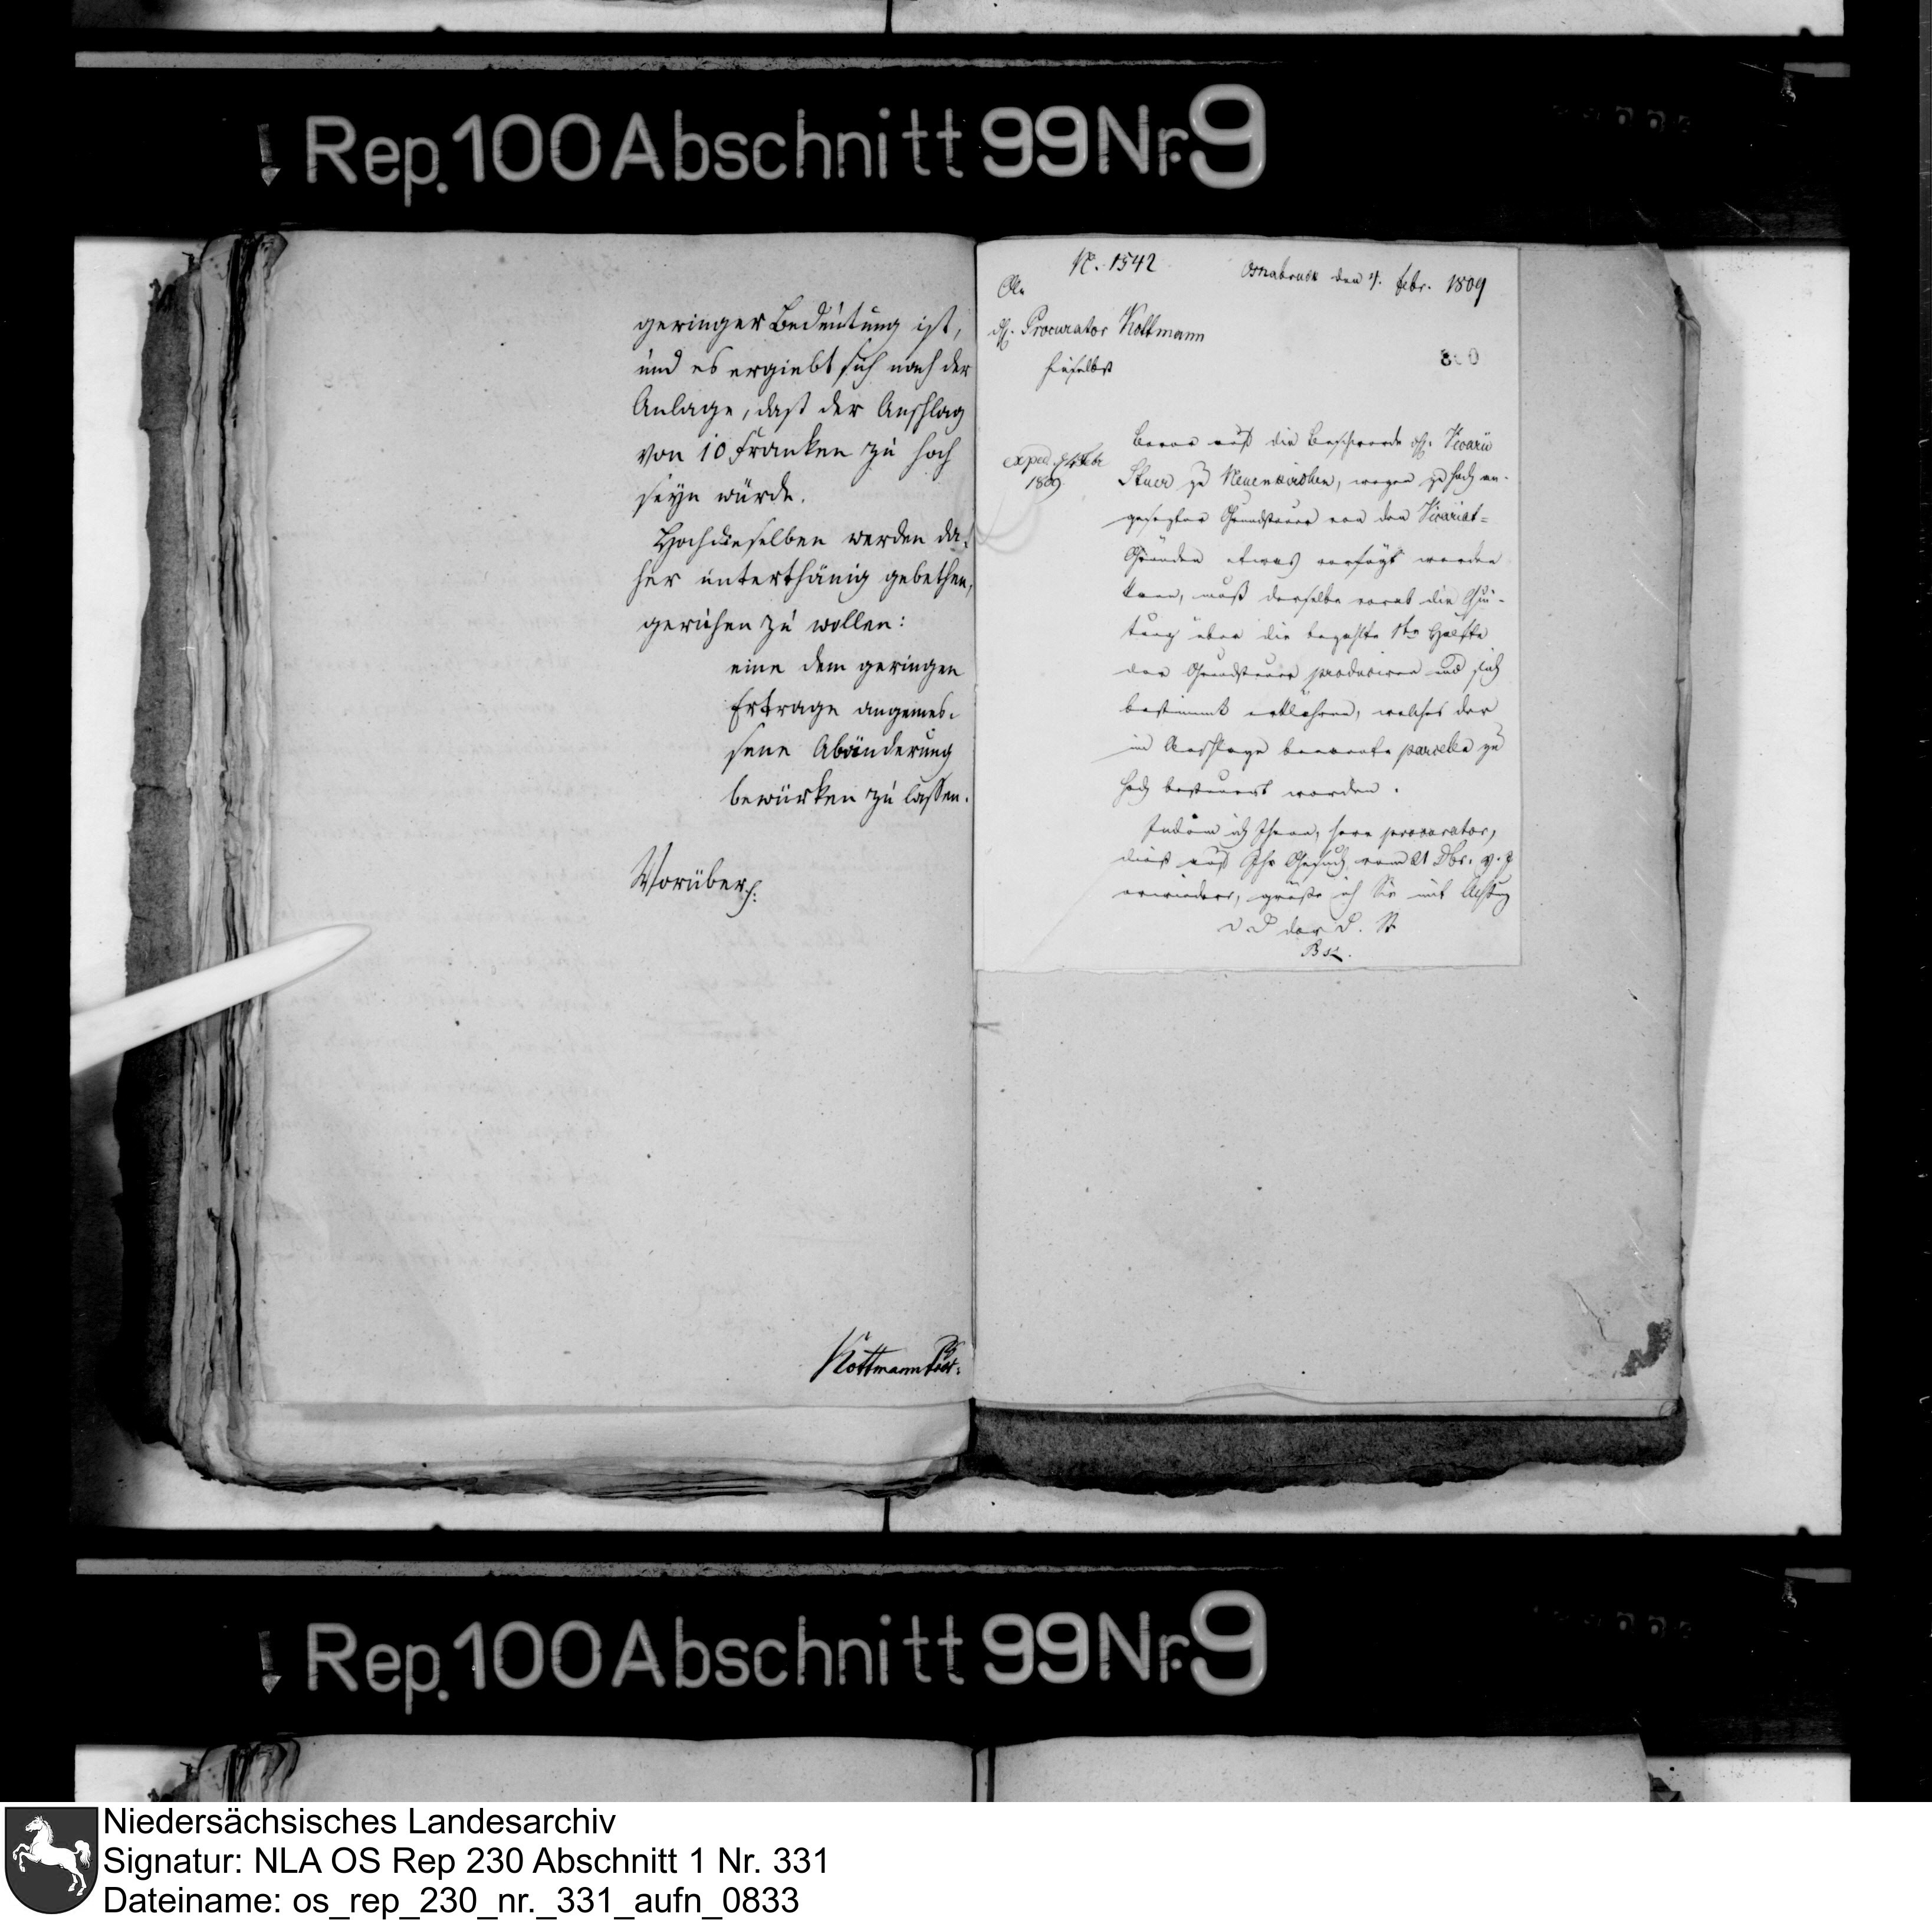 Rep. 100 Abschnitt 99 Nr. 9
geringer Bedeutung ist,
und es ergiebt sich nach der
Anlage, daß der Anschlag
von 10 Franken zu hoch
seyn würde.
Hochdieselben werden da-
her unterthänig gebethen,
geruhen zu wollen:
eine dem geringen
Ertrage angemes-
sene Abänderung
bewürken zu lassen.
Worüber
Kottmann
N. 1542
Osnabruck den 4. febr. 1809
An
H. Procurator Kottmann
hieselbst
exped. 4 Febr
1809
Bevor auf die Beschwerde H. Vicarii
Stuer zu Neuenkirchen, wegen zu hoch an-
gesezter Grundsteuer von den Vicariat-
Gründen etwas verfügt werden
kann, muß derselbe vorab die Quit-
tung über die bezahlte 1te Haelfte
der Grundsteuer produciren und sich
bestimmt erklähren, welches der
im Anschlage bemerkte parcele zu
hoch besteuert worden.
Indem ich Ihnen, herr procurator,
dies auf Ihr Gesuch vom 21 Dbr. v. J
erwiedere, grüße ich Sie mit Achtung
D. P. der D. St.
Rep. 100 Abschnitt 99 Nr. 9
Niedersächsisches Landesarchiv
Signatur: NLA OS Rep 230 Abschnitt 1 Nr. 331
Dateiname: os_rep_230_nr._331_aufn_0833